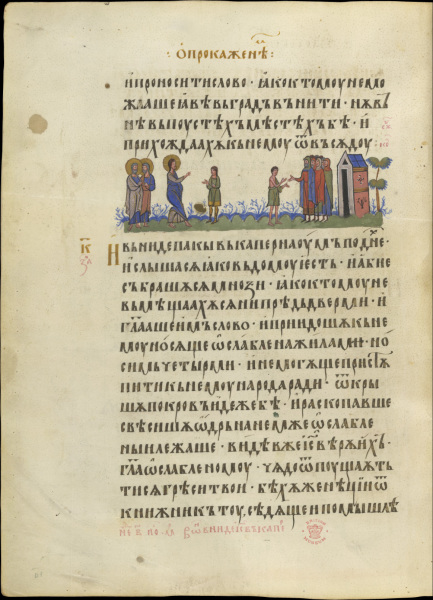 О ПРОКАЖЕНѢ
И ПРОНОСИТИ СЛОВО · ꙖКО КТОМОУ НЕ МО
ЖААШЕ ꙖВѢ ВЬ ГРАДЪ ВЪНИТИ · НѪ ВЪ
НѢ ВЬ ПОУСТѢХЪ МѢСТѢХЪ БѢ · И
ПРИХОЖДААХѪ КЬ НЕМОУ ѾВЪСѪДОУ
К҃
И ВЬНИДЕ ПАКЫ ВЬ КАПЕРНАОУМЪ ПО ДН҃Е
И СЛЫША СѦ ꙖКО ВЬ ДОМОУ ЕСТЬ · И АБИЕ
СЪБРАШѦ СѦ МНОЗИ · ꙖКО КТОМОУ НЕ
ВЬМѢЩААХѪ СѦ НИ ПРѢДЬ ДВЕРМИ · И
ГЛ҃ААШЕ ИМЪ СЛОВО · И ПРИИДОШѦ КЬ НЕ
МОУ НОСѦЩЕ ѠСЛАБЛЕНА ЖИЛАМИ · НО
СИМЬ ЧЕТЫРМИ · И НЕ МОГѪЩЕ ПРИСТѪ
ПИТИ КЬ НЕМОУ НАРОДА РАДИ · ѾКРЫ
ШѦ ПОКРОВЪ ИДЕЖЕ БѢ · И РАСКОПАВШЕ
СВѢСИШѦ ѠДРЬ НА НЕМЖЕ ѠСЛАБЛЕ
НЫИ ЛЕЖАШЕ · ВИДѢВ ЖЕ І҃С ВѢРѪ ИХЪ ·
ГЛ҃А ѠСЛАБЛЕНОМОУ · ЧѦДО ѾПОУЩАѪТЬ
ТИ СѦ ГРѢСИ ТВОИ · БѢХѪ ЖЕ НЕЦІИ Ѿ
КНИЖНИКЪ ТОУ СѢДѦЩЕ И ПОМЫШЛѢ